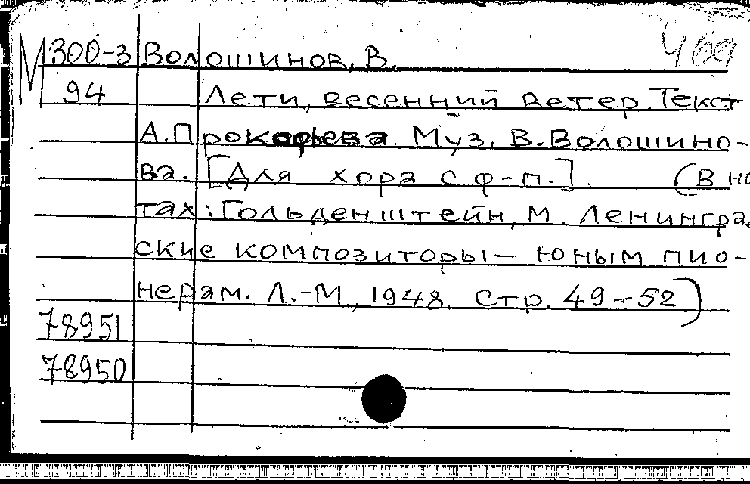 М300-3 Волошинов, В. 469
94 Лети, весенний ветер. Текст
А.Прокофьева Муз. В.Волошино-
ва. [Для хора с ф-п.] (В но
тах: Гольденштейн, М. Ленингра
ские композиторы – юным пио-
нерам. Л.-М., 1948. стр. 49-52)
78951
78950